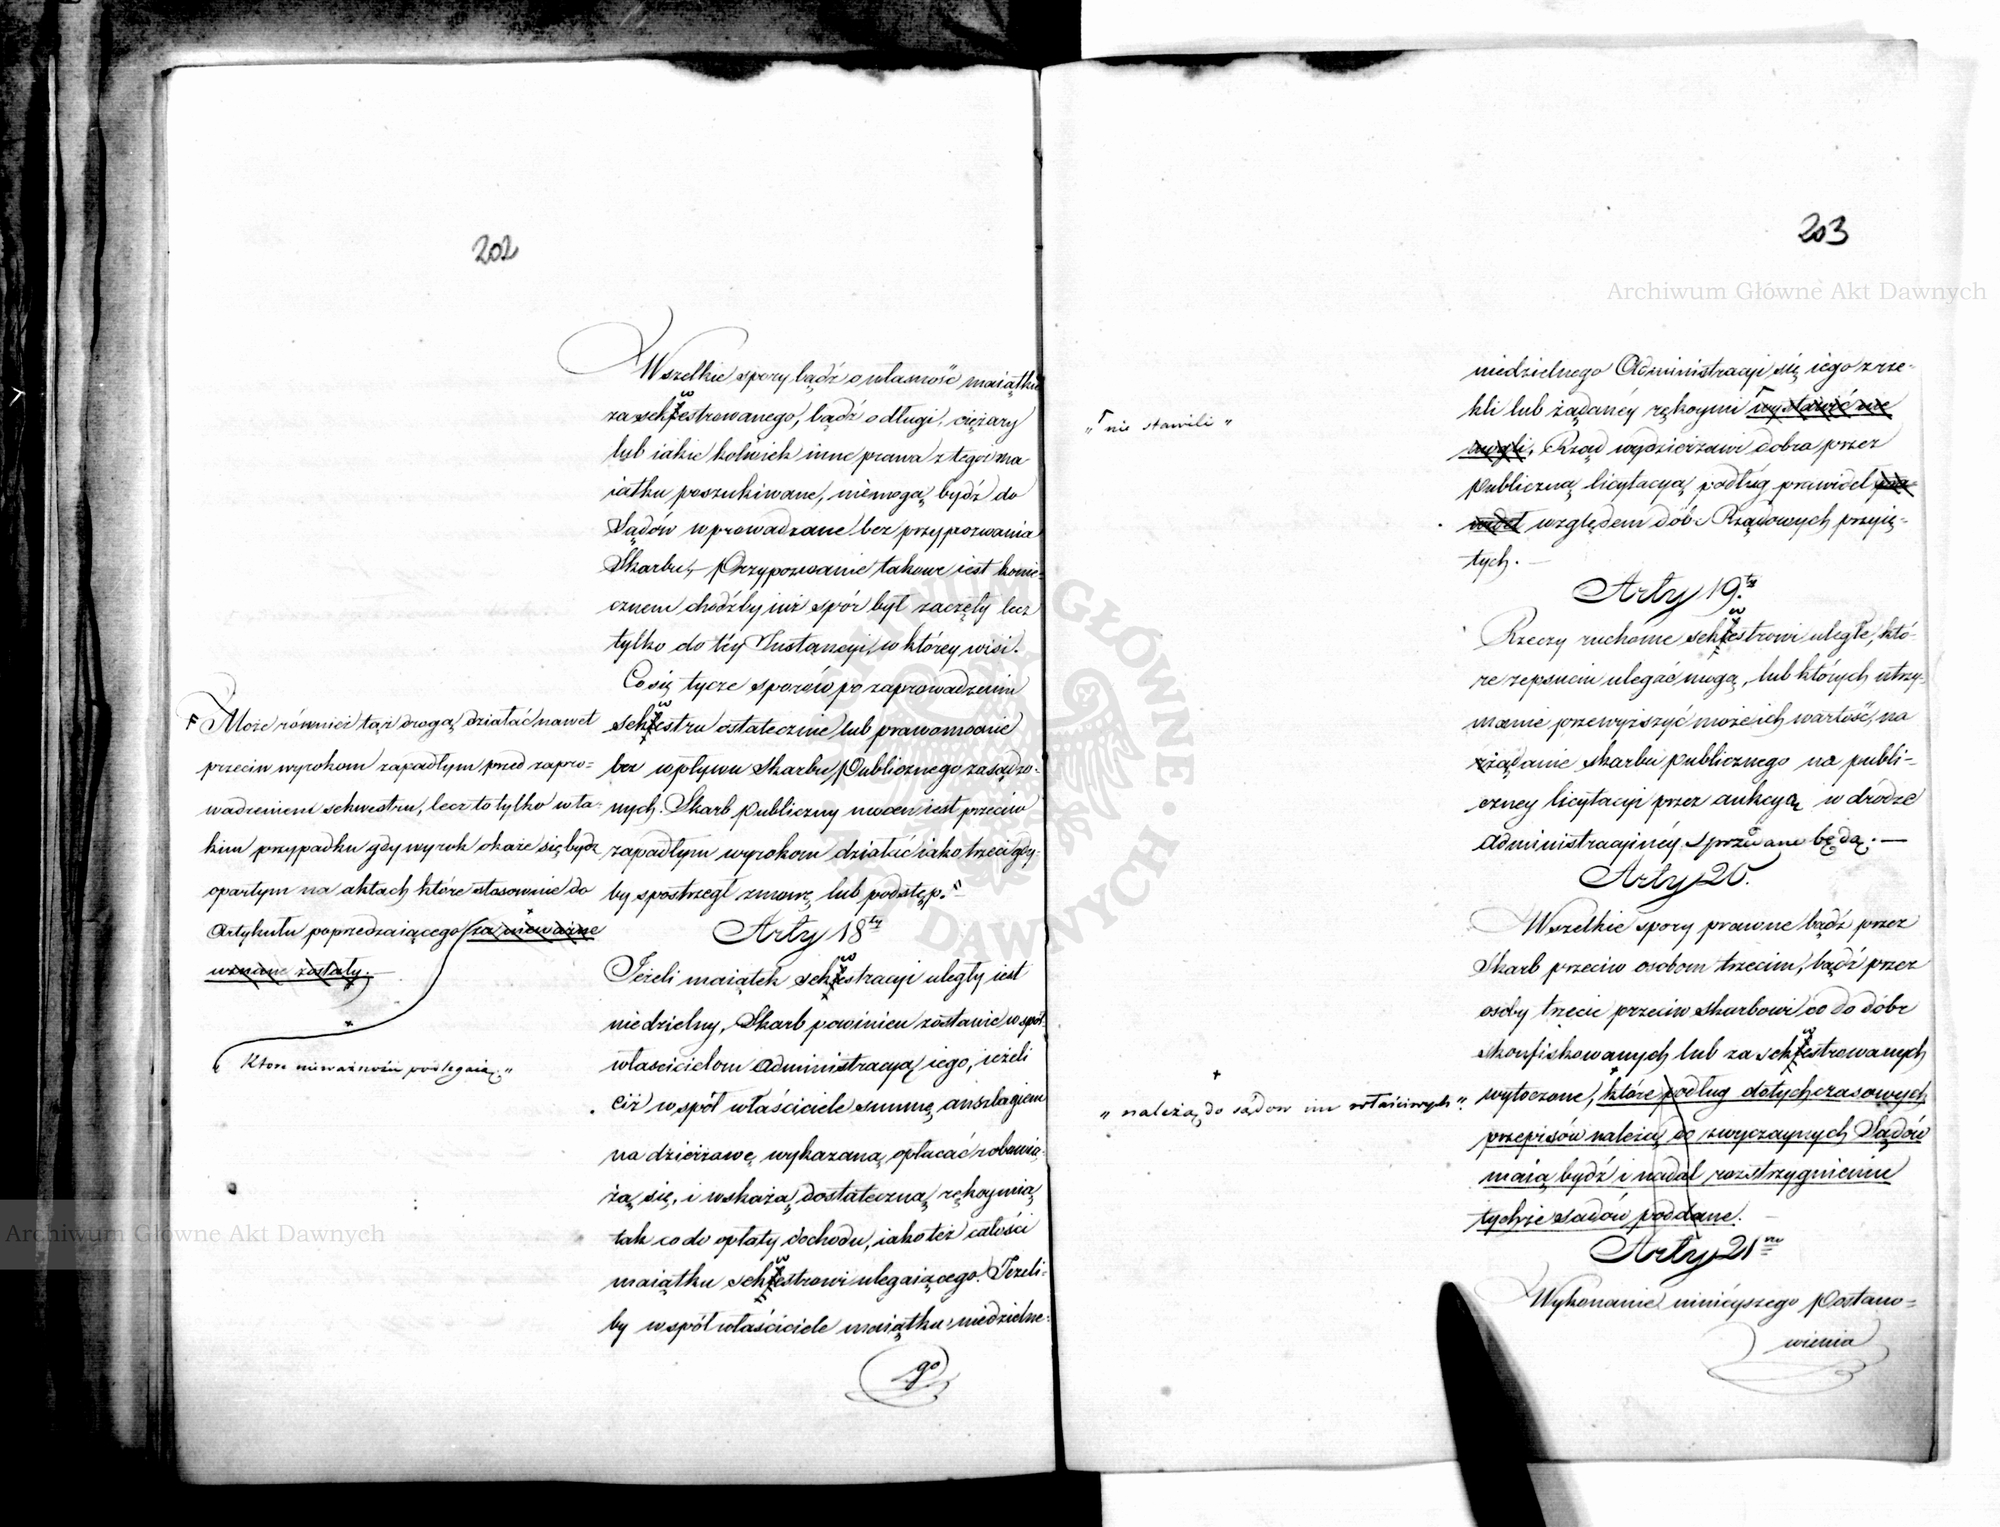 202
Wszelkie spory bądź o własność maiątku
zasekwestrowanego, bądź o długi, ciężary
lub iakie kolwiek inne prawa z tegoż ma-
iątku poszukiwane, niemogą bydź do
Sądów wprowadzane bez przypozwania
Skarbu, Przypozwanie takowe iest konie-
cznem chodźby iuż spór był zaczęty lecz
tylko do téy Instancyi, w którey wisi.
Co się tycze sporów po zaprowadzeniu
sekwestru ostatecznie lub prawomocnie
bez wpływu Skarbu Publicznego zasądzo-
nych. Skarb Publiczny mocen iest przeciw
zapadłym wyrokom działać iako trzeci gdy-
by spostrzegł zmowę lub podstęp.
Może również tąż drogą działać nawet
przeciw wyrokom zapadłym przed zapro-
wadzeniem sekwestru, lecz to tylko w ta-
kim przypadku gdy wyrok okaże się bydź
opartym na aktach które stosownie do
Artykułu poprzedzaiącego za nieważne
uznane zostały.
które nieważności podlegaią."
Arty 18ty
Jeżeli maiątek sekwestracyi uległy iest
niedzielny, Skarb powinien zostawić współ-
właścicielom Administracyą iego, ieżeli
ciż współ właściciele summę anszlagiem
na dzierżawę wykazaną, opłacać zobowią-
żą się, i wskażą dostateczną rękoymią
tak co do opłaty dochodu, iako też całości
maiątku sekwestrowi ulegaiącego. Jeżeli-
by współ właściciele maiątku niedzielne-
go
203
Archiwum Główne Akt Dawnych
niedzielnego Administracyi się iego zrze-
kli lub żądanéy rękoymi wystawić nie
mogli, Rząd wydzierżawi dobra przez
publiczną licytacyą podług prawideł pra-
wideł względem dóbr Rządowych przyię-
tych.
„ nie stawili "
Arty 19.ty
Rzeczy ruchome sekwestrowi uległe, któ-
re zepsuciu ulegać mogą, lub których utrzy-
manie przewyższyć może ich wartość, na
żądanie skarbu publicznego na publi-
czney licytacyi przez aukcyą w drodze
Administracyinéy sprzedane będą.
Arty 20.
Wszelkie spory prawne bądź przez
Skarb przeciw osobom trzecim, bądź przez
osoby trzecie przeciw skarbowi co do dóbr
skonfiskowanych lub zasekwestrowanych
wytoczone, które podług dotychczasowych
przepisów należą do zwyczaynych Sądów
maią bydź i nadal rozstrzygnieniu
tychże sadów poddane.
„ należą do sądów im właściwych".
Arty 21
Wykonanie ninieyszego Postano-
wienia
Archiwum Główne Akt Dawnych
ARCHIWUM GŁÓWNE AKT DAWNYCH